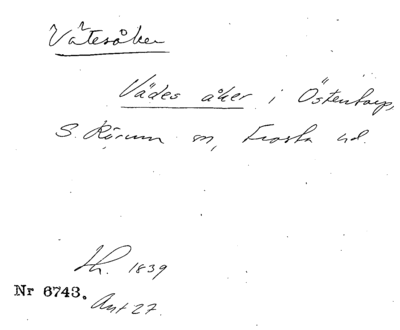 Vätesåker
Vädes åker i Östentorp,
S. Rörum sn, Frosta hd.
Lh. 1839
Nr 6743.
Ant 27.